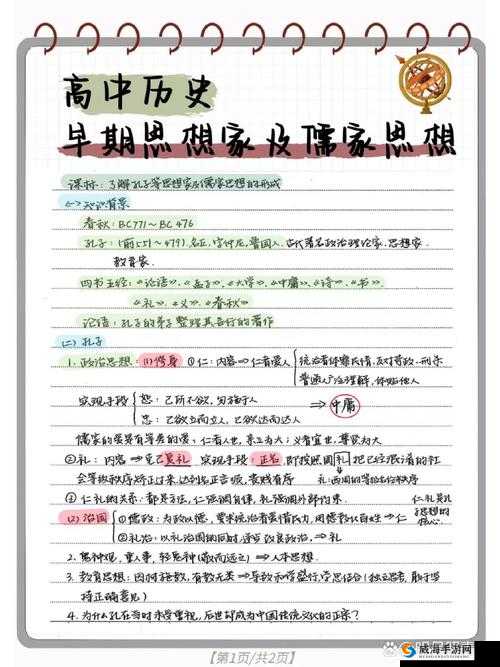 高中历史
早期思想家及儒家思想
课标：了解孔子等思想家及儒家思想的形成
(一) 知识背景
春秋：BC771～BC476
孔子：(前551～479)，名丘，字仲尼，鲁国人，古代著名政治理论家、思想家、
教育家.
四书五经：《论语》、《孟子》、《大学》、《中庸》、《诗》、《书》、
《礼》、《义》、《春秋》
论语：孔子的弟子整理其言行的著作
(二) 孔子
1. 政治思想：(1) 修身 ①仁：内容⇒仁者爱人
统治者体察民情，反对苛政、刑杀
普通人"治理解，体贴他人
实现手段
恕：己所不欲，勿施于人
忠：己欲立而立人，己欲达而达人
⇒中庸
儒家的爱是有等差的爱：仁者人也，亲亲为大；义者宜也，尊贤为大
②礼：内容⇒克己复礼 实现手段：正名 即按照周礼把已经混淆的社
会等级秩序矫正过来，达到名正言顺，贵贱有序
礼：西周的等级名份秩序
③仁礼的关系：都是方法，仁强调自律，礼强调外部约束.
仁、礼是孔
子思想的
核心.
(2) 治国
①德政：为政以德，要求统治者爱惜民力，用德教化百姓→仁
②礼治：以礼治国的同时，逐步改良政治，→礼
2. 鬼神观，重人事，轻鬼神(敬而远之)→人本思想.
3. 教育思想：因材施教，有教无类
持正确意见)
4. 为什么孔在当时未受重视，后世却成为中国传统文化的正宗？
【第1页/共2页】
威海手游网